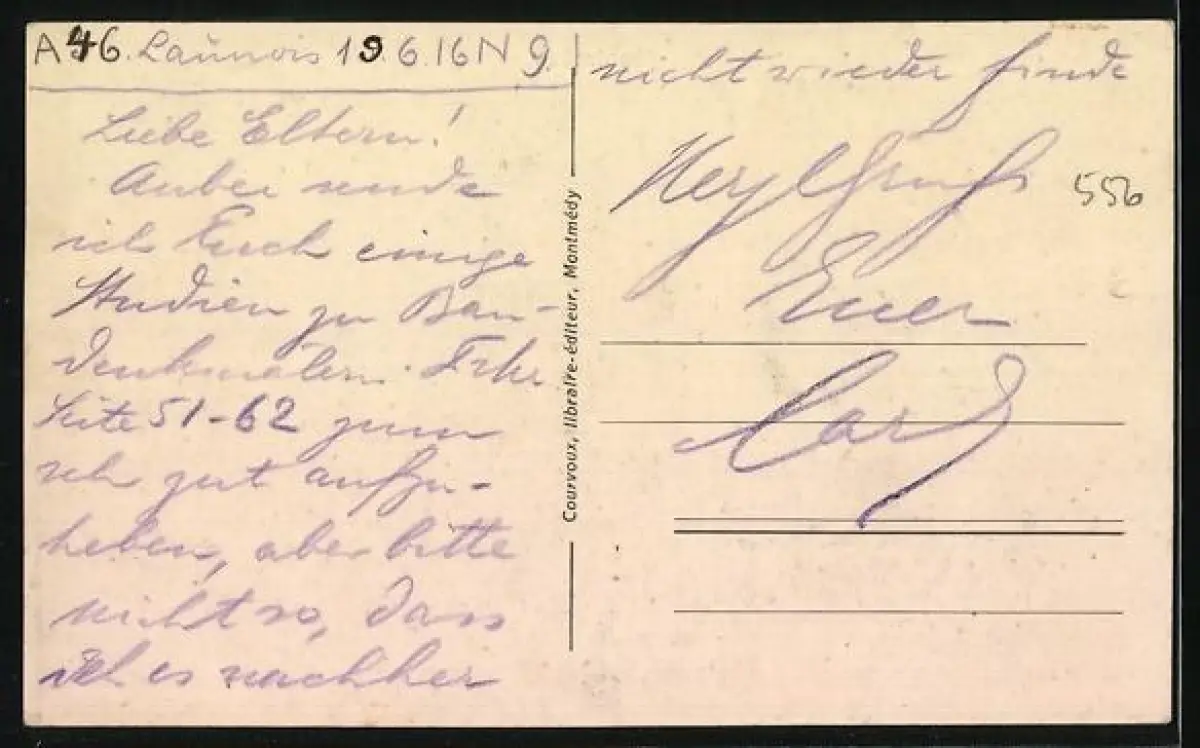 A 46. Launois 19.6.16 N 9.
Liebe Eltern!
Anbei sende
ich Euch einige
Studien zu Bau-
denkmälern.
Seite 51-62 zum
sehr gut aufzu-
heben, aber bitte
nicht so, dass
ich es nachher
Courvoux, libraire-éditeur, Montmédy
nicht wieder finde
Herzl Gruß
Euer
Carl
556